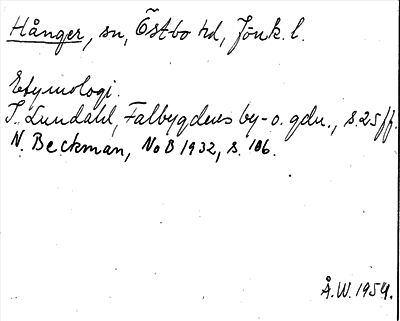 Hånger, sn, Östbo hd, Jönk. l.
Etymologi.
I. Lundahl, Falbygdens by- o. gdn., s. 25 ff.
N. Beckman, NoB 1932, s. 186.
Å.W. 1954.